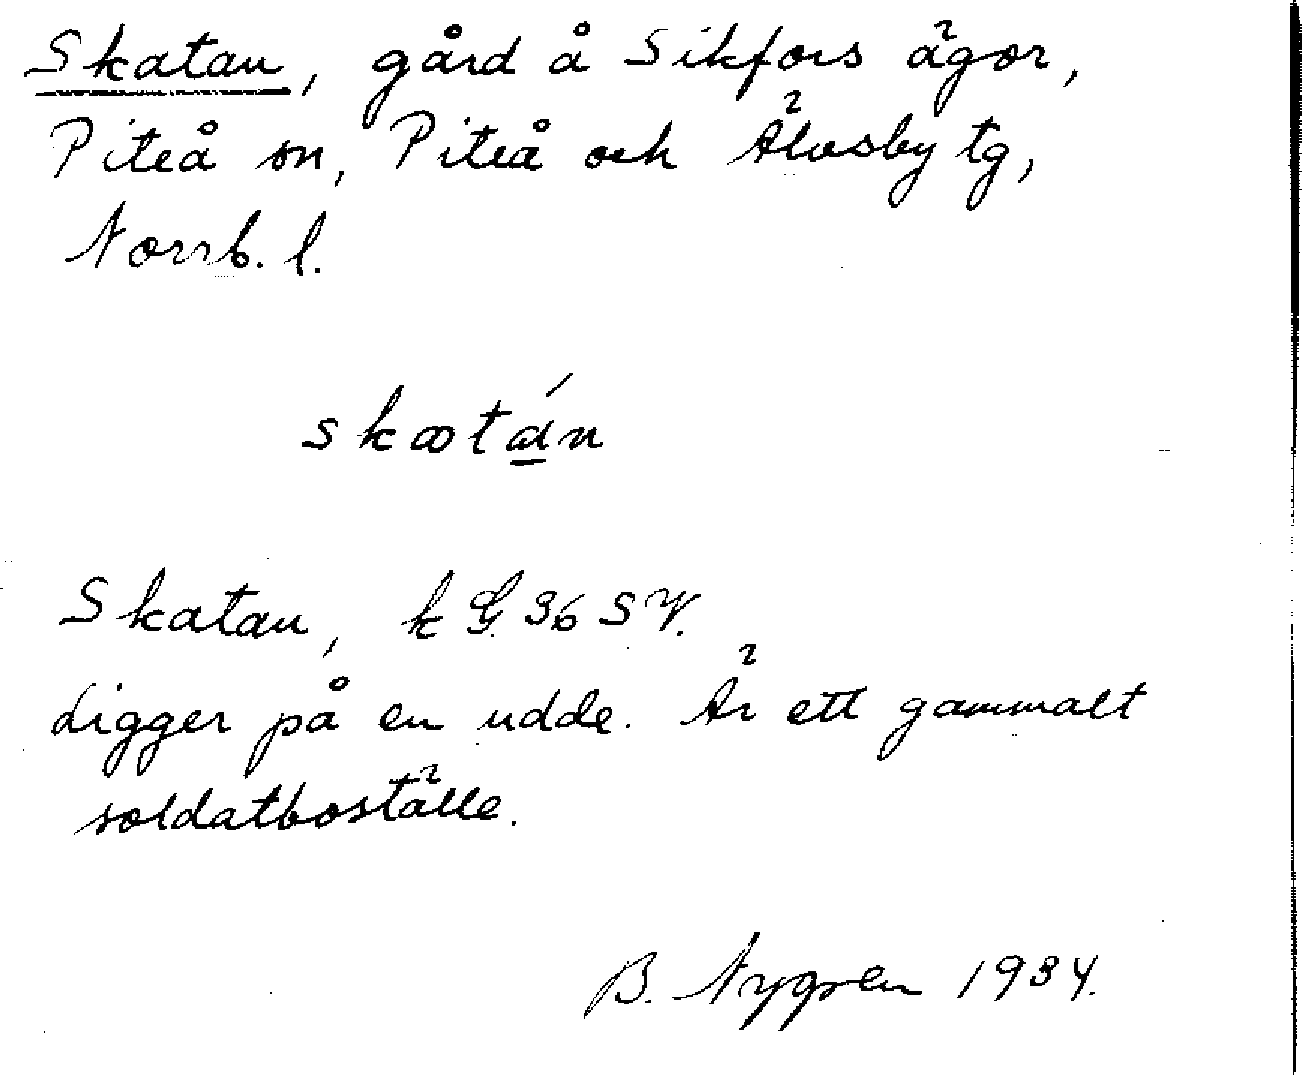 Skatan, gård å Sikfors ägor,
Piteå sn, Piteå och Älvsby tg,
Norrb. l.
skatán
Skatan, k G. 36 SV.
Ligger på en udde. Är ett gammalt
soldatboställe.
B. Nygren 1934.